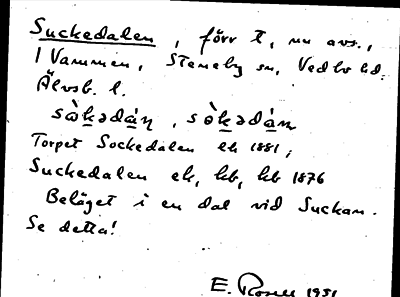 Suckedalen, förr t, nu avs.,
i Vammen, Steneby sn, Vedbo hd.
Älvsb. l.
sàkədán, sòkədán
Torpet Sockedalen ek 1881;
Suckedalen ek, hb, kb 1876
Beläget i en dal vid Suckan.
Se detta!
E. Rosell 1951